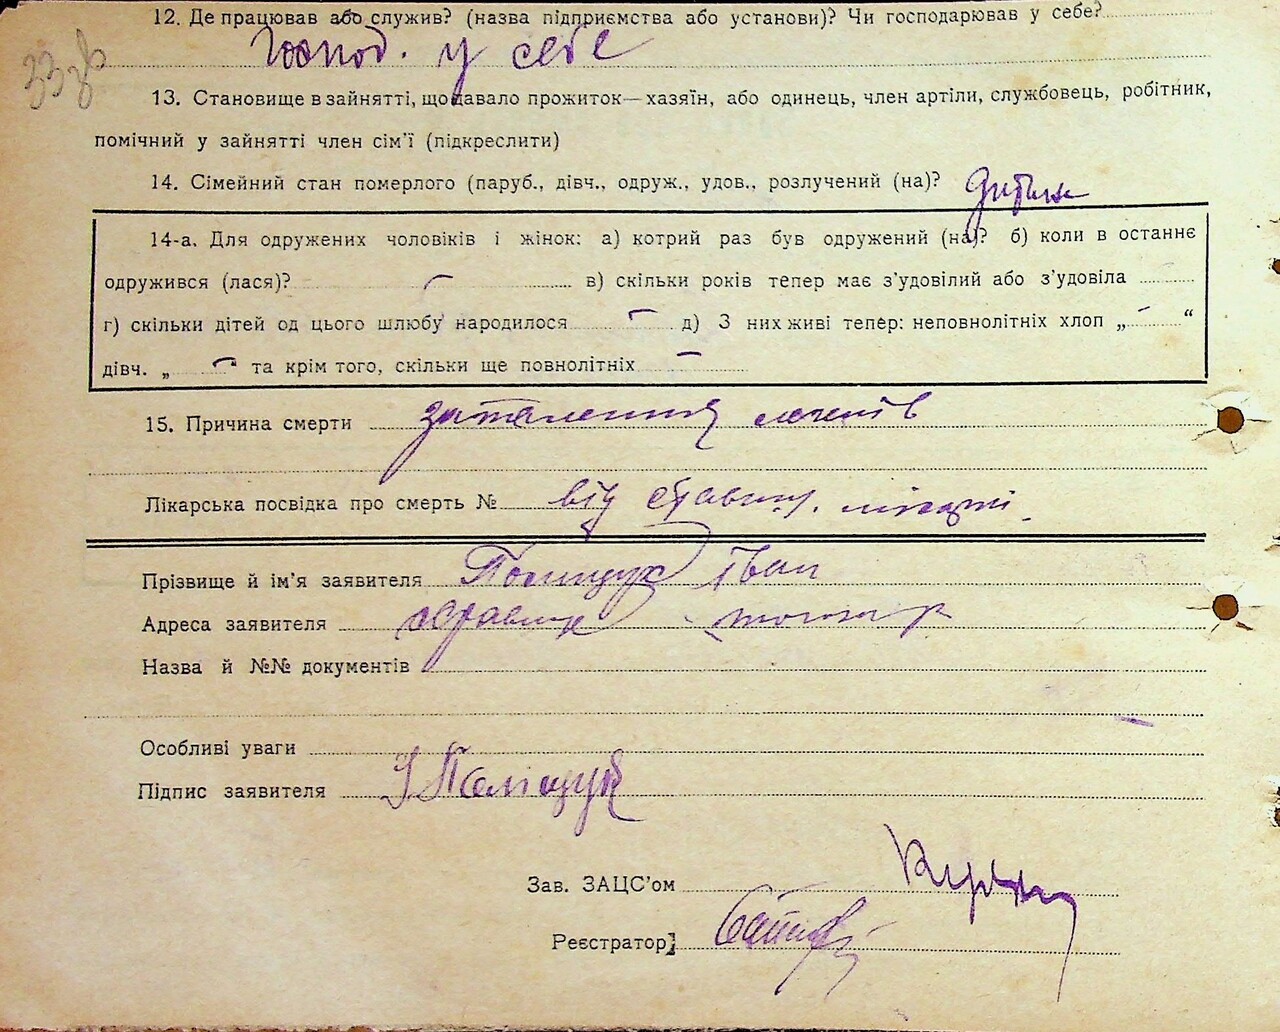 12. Де працював або служив? (назва підприємства або установи)? Чи господарював у себе?
33 зв
Господ. у себе
13. Становище в зайнятті, що давало прожиток—хазяїн, або одинець, член артіли, службовець, робітник,
помічний у зайнятті член сім'ї (підкреслити)
14. Сімейний стан померлого (паруб., дівч., одруж., удов., розлучений (на)? дитина
14-а. Для одружених чоловіків і жінок: а) котрий раз був одружений (на)? б) коли в останнє
одружився (лася)? — в) скільки років тепер має з'удовілий або з'удовіла
г) скільки дітей од цього шлюбу народилося — д) З них живі тепер: неповнолітніх хлоп „ — “
дівч. „ — “ та крім того, скільки ще повнолітніх —
15. Причина смерти запалення легенів
Лікарська посвідка про смерть № від
Прізвище й ім'я заявителя Поліщук Іван
Адреса заявителя
Назва й №№ документів
Особливі уваги
Підпис заявителя І Поліщук
Зав. ЗАЦС'ом
Реєстратор